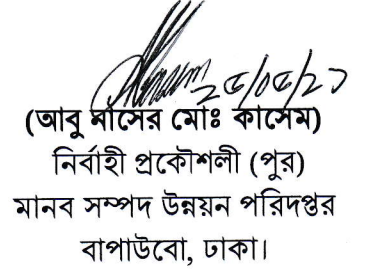 ২৫/০৫/২১
(আবু নাসের মোঃ কাসেম)
নির্বাহী প্রকৌশলী (পুর)
মানব সম্পদ উন্নয়ন পরিদপ্তর
বাপাউবো, ঢাকা।